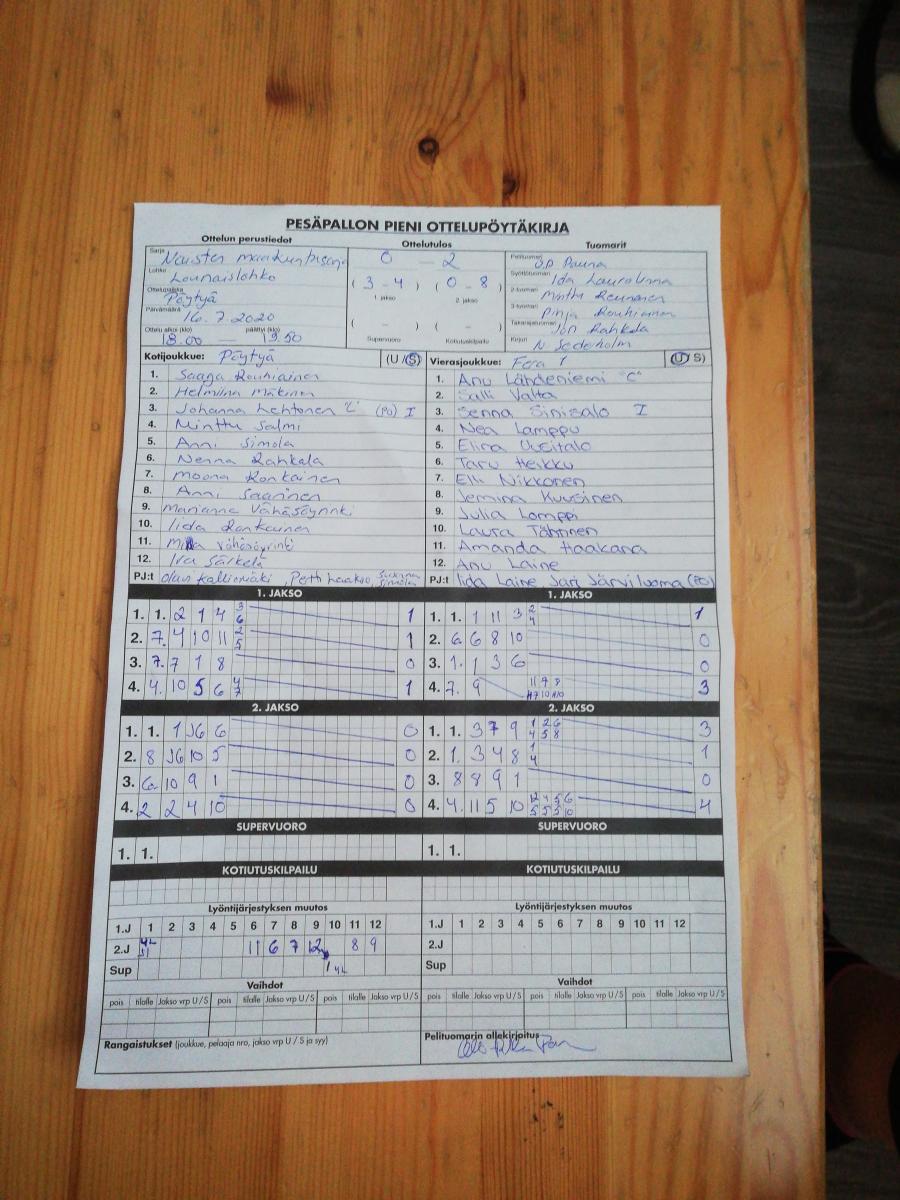 PESÄPALLON PIENI OTTELUPÖYTÄKIRJA
Ottelun perustiedot Ottelutulos Tuomarit
Sarja Naisten
Lohko Lounaislohko
Ottelupaikka Pöytyä
Päivämäärä 16.7.2020
Ottelu alkoi (klo) päättyi (klo)
18.00 — 19.50
0 — 2
(3 - 4) (0 - 8)
1. jakso 2. jakso
( - ) ( - )
Supervuoro Kotiutuskilpailu
Pelituomari O.P. Pauna
Syöttötuomari Ida
2-tuomari Minttu
3-tuomari Pinja Rouhiainen
Takarajatuomari Jon Rahkola
Kirjuri N Sederholm
Kotijoukkue: Pöytyä (U/S)
1. Saaga Rouhiainen
2. Helmiina Mäkinen
3. Johanna Lehtonen "C" (PJ) I
4. Minttu Salmi
5. Anni Simola
6. Nenna Rahkala
7. Moona Ronkainen
8. Anni Saarinen
9. Marianne Vähäsöyrinki
10. Iida Ronkainen
11. Vähäsöyrinki
12. Ira Särkelä
PJ:t Olavi Kalliomäki, Petti
Vierasjoukkue: Fera 1 (U/S)
1. Anu Lähdeniemi "C"
2. Salli Valta
3. Senna Sinisalo I
4. Nea Lamppu
5. Elina Uusitalo
6. Taru Heikku
7. Elli Nikkonen
8. Jemina Kuusinen
9. Julia Lamppi
10. Laura Tähtinen
11. Amanda Haakana
12. Anu Laine
PJ:t Iida Laine Jari Järviluoma (PJ)
1. JAKSO
1. 1. 2 1 4 3 6 1
2. 7. 4 10 11 2 5 1
3. 7. 7 1 8 0
4. 4. 10 5 6 4 7 1
1. JAKSO
1. 1. 1 11 3 2 4 1
2. 6. 6 8 10 0
3. 1. 1 3 6 0
4. 7. 9 3
2. JAKSO
1. 1. 1 J6 6 0
2. 8 J6 10 5 0
3. 6. 10 9 1 0
4. 2 2 4 10 0
2. JAKSO
1. 1. 3 7 9 1 2 6 4 5 8 3
2. 1. 3 4 8 1 4 1
3. 8 8 9 1 0
4. 4. 11 5 10 4
SUPERVUORO SUPERVUORO
1. 1. 1. 1.
KOTIUTUSKILPAILU KOTIUTUSKILPAILU
Lyöntijärjestyksen muutos Lyöntijärjestyksen muutos
1.J 1 2 3 4 5 6 7 8 9 10 11 12 1.J 1 2 3 4 5 6 7 8 9 10 11 12
2.J 11 6 7 12 8 9 2.J
Sup Sup
Vaihdot Vaihdot
pois tilalle Jakso vrp U/S pois tilalle Jakso vrp U/S pois tilalle Jakso vrp U/S pois tilalle Jakso vrp U/S pois tilalle Jakso vrp U/S pois tilalle Jakso vrp U/S
Rangaistukset (joukkue, pelaaja nro, jakso vrp U / S ja syy) Pelituomarin allekirjoitus